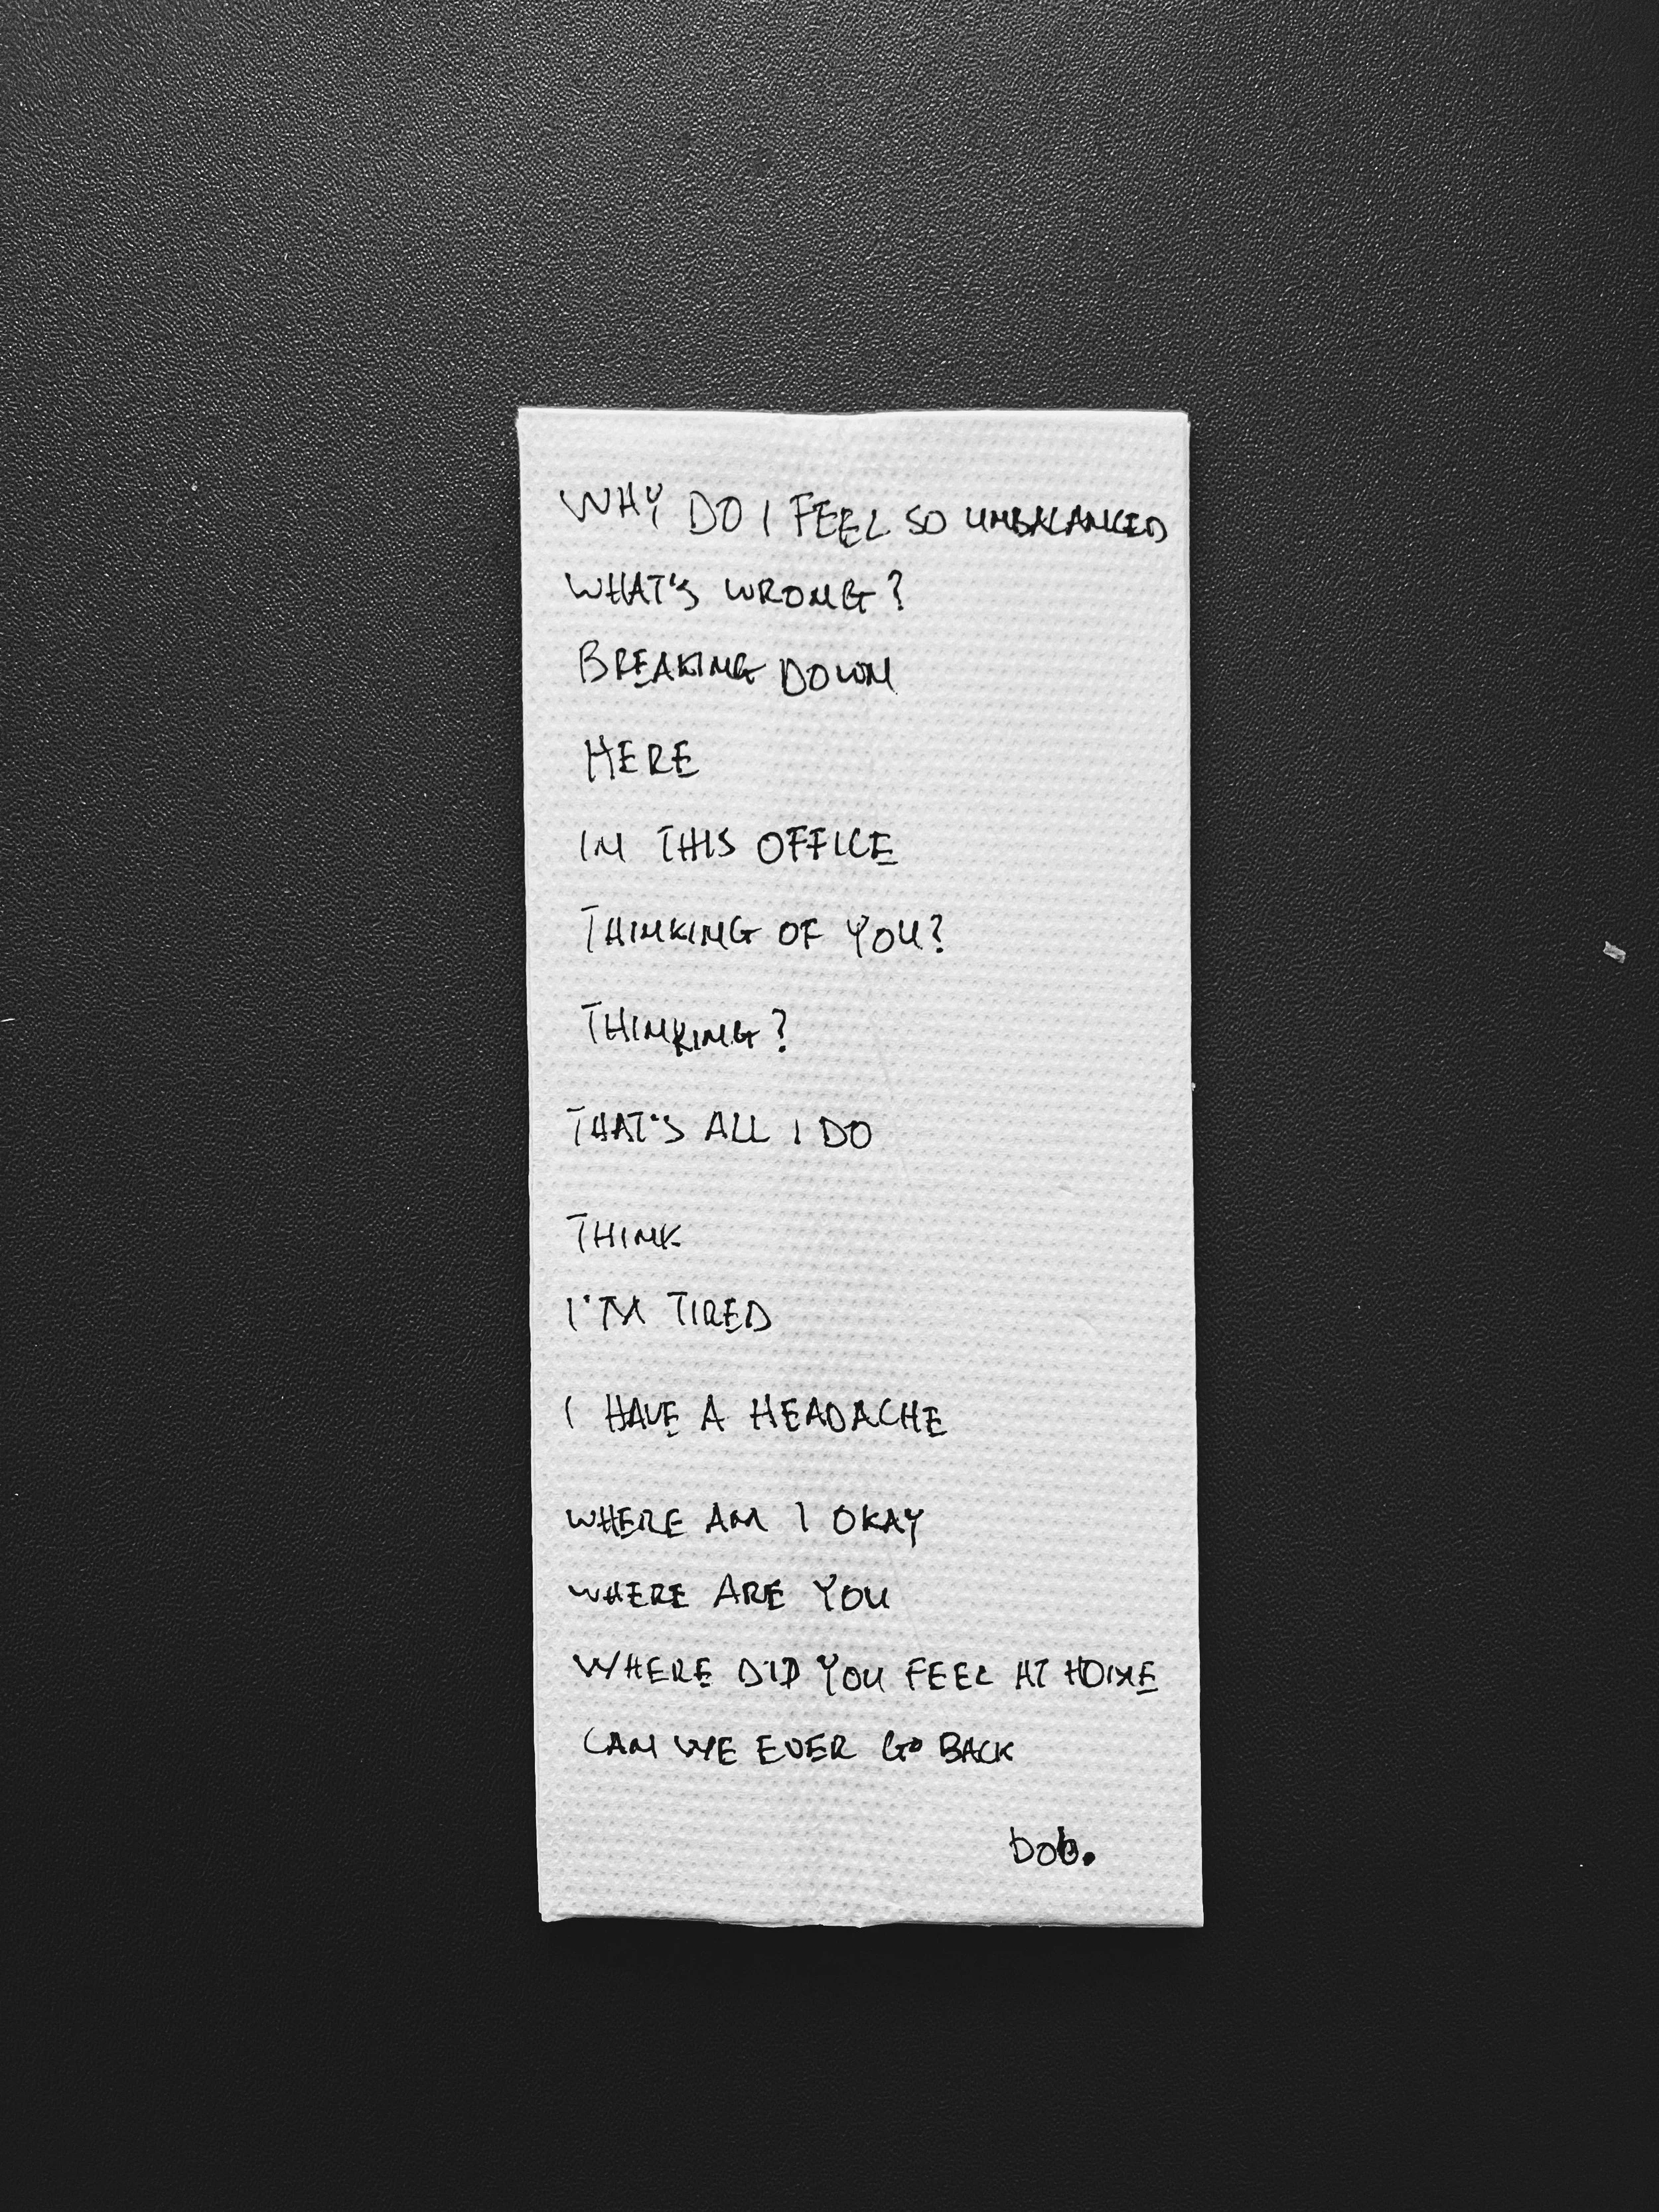 WHY DO I FEEL SO UNBALANCED
WHAT'S WRONG?
BREAKING DOWN
HERE
IN THIS OFFICE
THINKING OF YOU?
THINKING?
THAT'S ALL I DO
THINK
I'M TIRED
I HAVE A HEADACHE
WHERE AM I OKAY
WHERE ARE YOU
WHERE DID YOU FEEL AT HOME
CAN WE EVER GO BACK
bob.